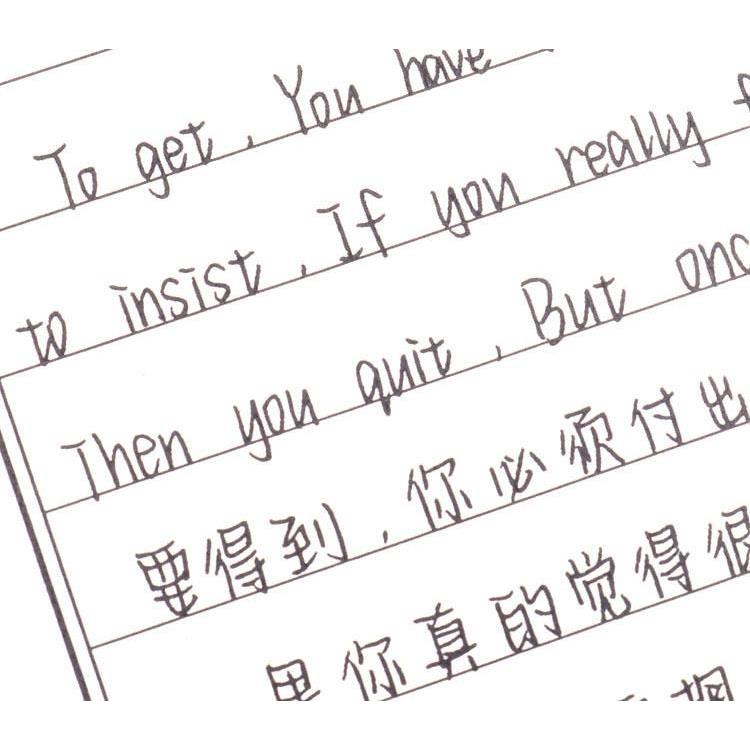 To get , You have
to insist . If you really
Then you quit , But
要得到 , 你必须付出
果你真的觉得很